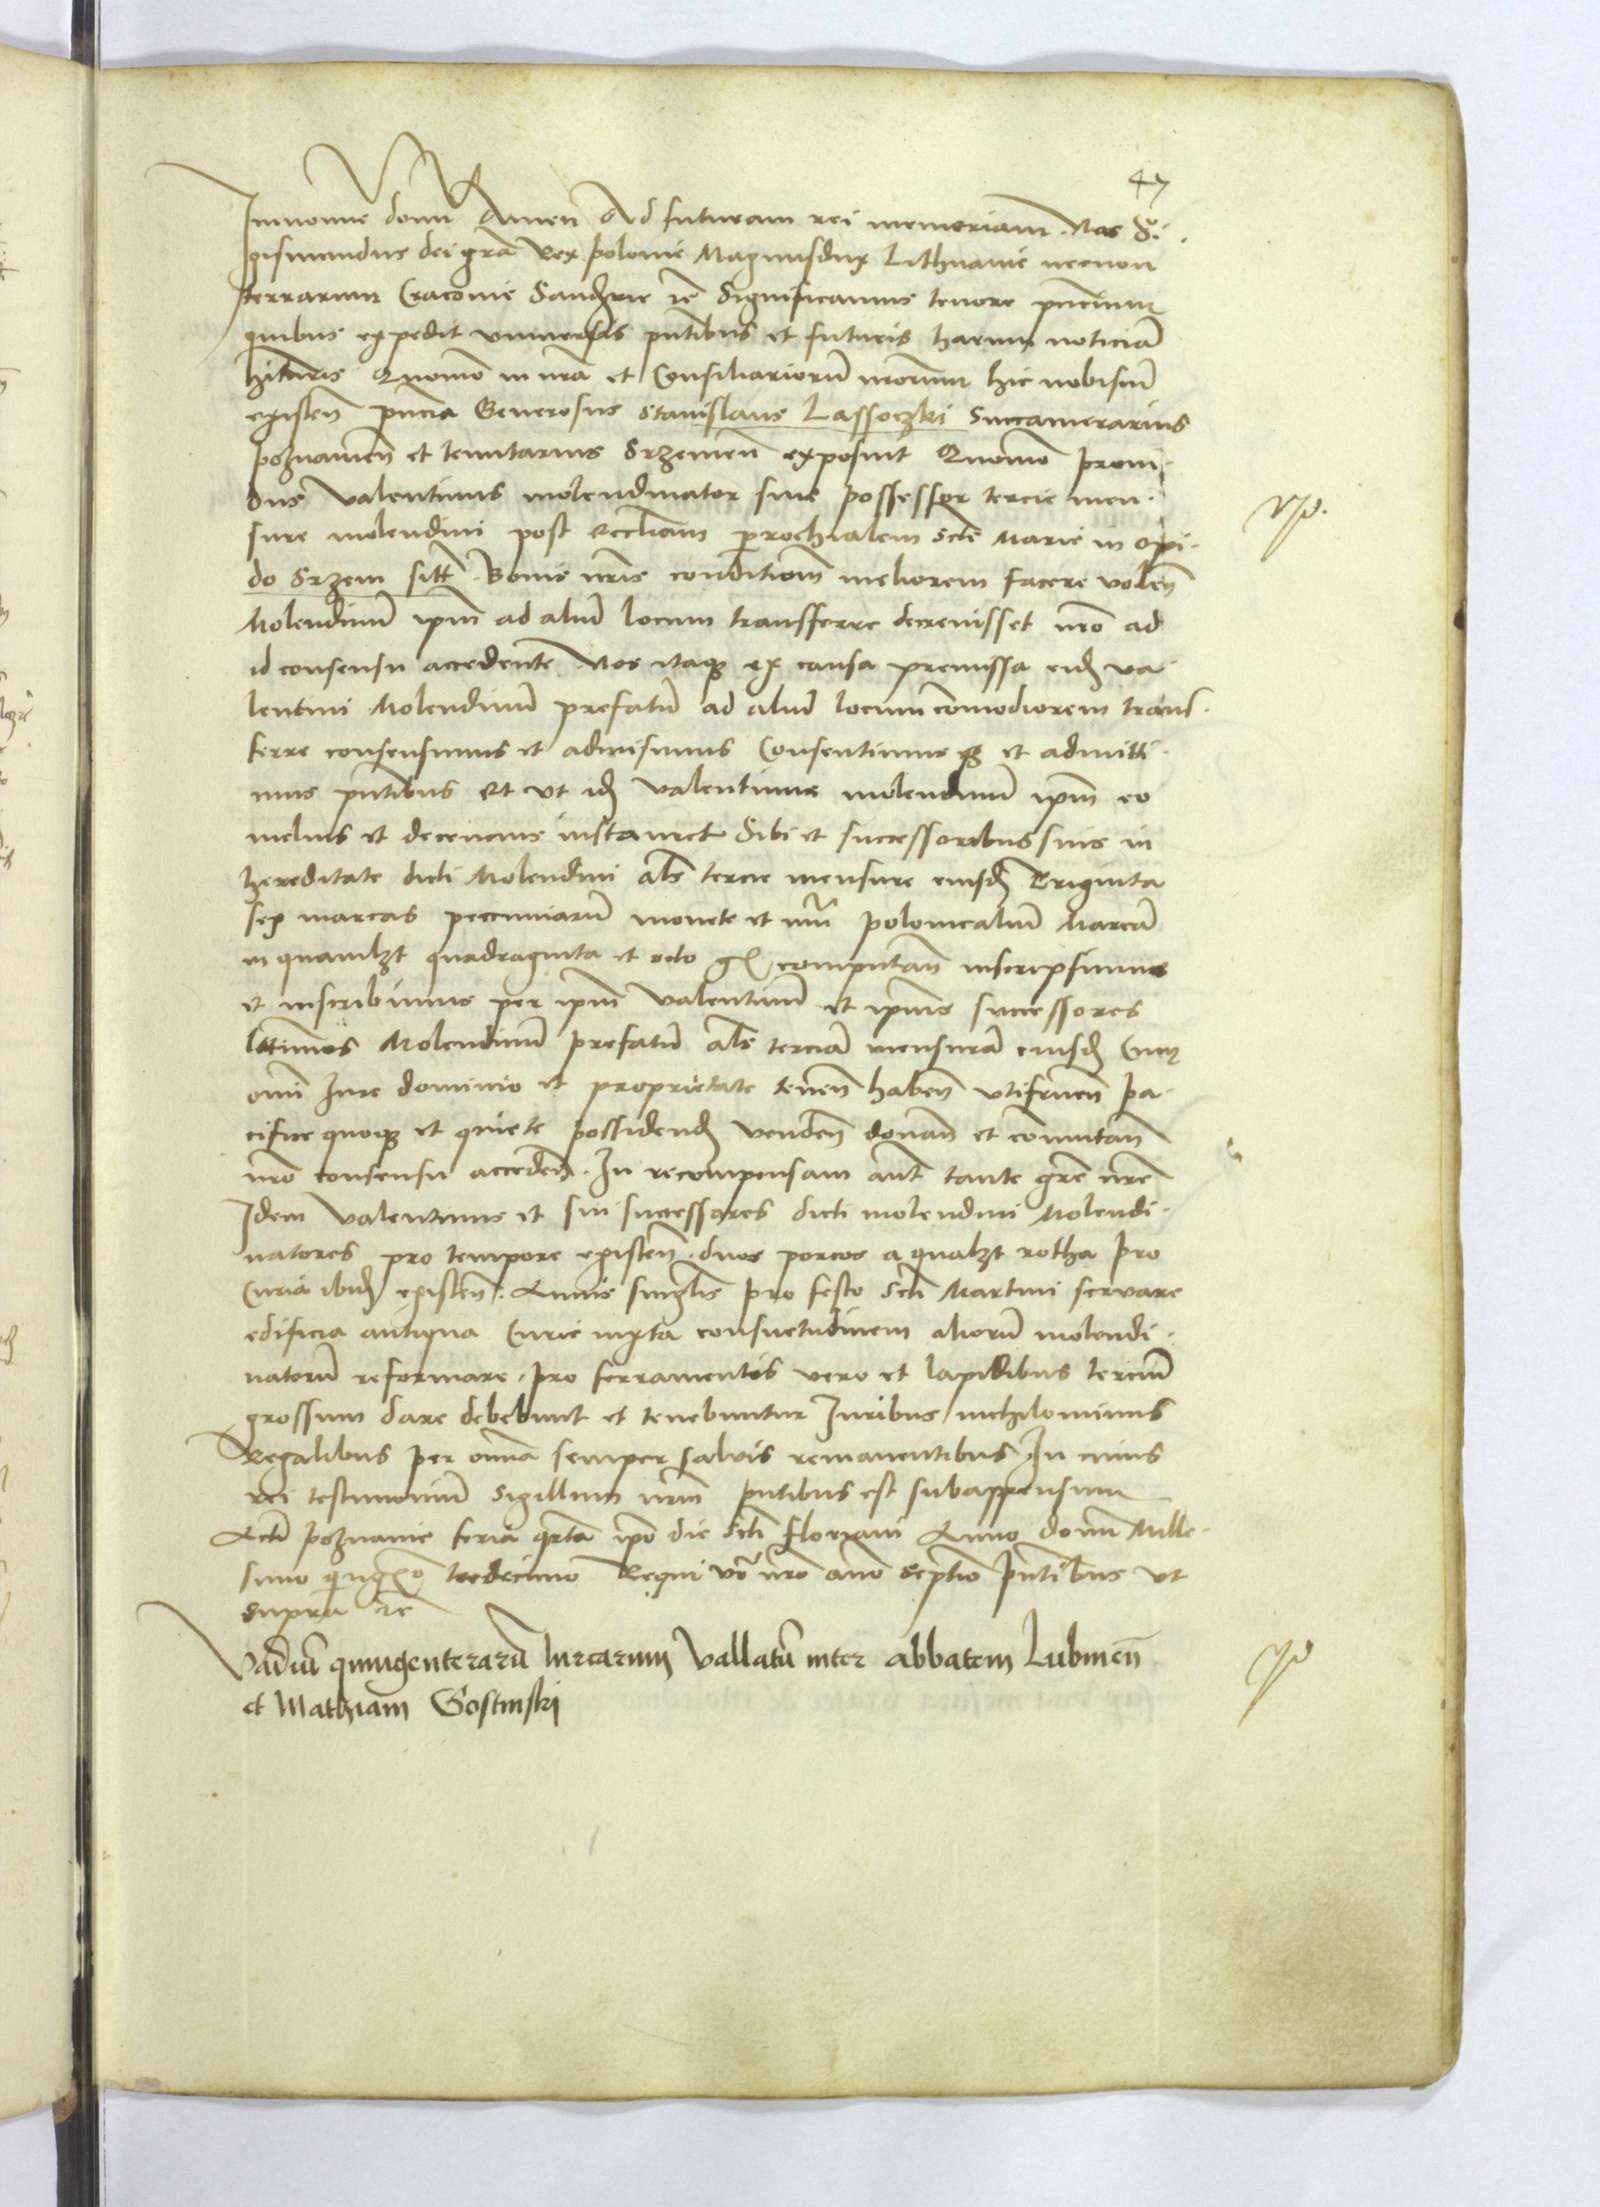 47
In nomine domi Amen Ad futuram rei memoriam Nos Si-
gismundus dei gra Rex polonie Magnusdux Lithuanie necnon
terrarum Cracovie Sandomrie zc Significamus tenore pncium
quibus expedit universis pntibus et futuris harum noticia
hituris Quomo in nra et Consiliariorum nrorum hic nobiscum
existen pncia Generosus Stanislaus Lassoczki Succamerarius
poznanien et tenutarius Srzemen exposuit Quomo provi-
dus Valentinus molendinator sive possessor tercie men-
sure molendini post eccliam parochialem Scte Marie in opi-
do Srzem sitt Bonis nris conditiom meliorem facere volen
Molendinu ipm ad aliu locum transferre decrevisset nro ad
id consensu accedente Nos itaqz ex causa premissa eid Va-
lentini Molendinu prefatu ad aliu locum comodiorem trans-
ferre consensimus et admisimus Consentimusqz et admitti-
mus pntibus Et ut id Valentinus molendinu ipm eo
melius et decencius instauret Sibi et successoribus suis in
hereditate dicti Molendini als tercie mensure eiusd Triginta
sex marcas pecuniaru monete et nui polonicaliu Marca
in quamlzt quadraginta et octo gr computan inscripsimus
et inscribimus per ipm Valentinu et ipius successores
lttimos Molendinu prefatu als tercia mensura eiusd Cum
omi Jure dominio et proprietate tenen haben utifruen pa-
cifice quoqz et quiete possidend venden donan et comutan
nro consensu acceden. In recompensam aut tante gre nre
Idem Valentinus et sui successores dicti molendini Molendi-
natores pro tempore existen duos porcos a qualzt rotha pro
Curia ibid existen. Annis singlis pro festo Scti Martini servare
edificia antiqua Curie iuxta consuetudinem alioru molendi-
natoru reformare, pro ferramentis vero et lapidibus terciu
grossum dare debebunt et tenebuntur Juribus nichilominus
Regalibus per omia semper salvis remanentibus In cuius
rei testimoniu Sigillum nrm pntibus est subappensum
Actu poznanie feria qrta ipo die Scti floriani Anno domi Mille-
simo quigxo tredecimo Regni vo nro ano Septio pntibus ut
supra zc
Vadiu quingenterarum Lurcarum Vallatu inter abbatem Lubinen
et Mathiam Gostinski